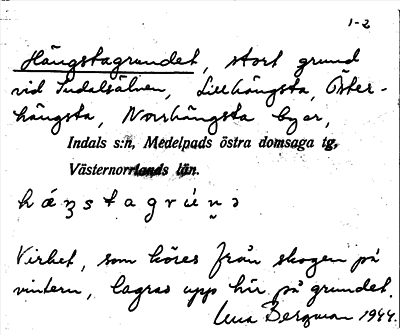 1-2
Hängstagrundet, stort grund
vid Indalsälven, Lillhängsta, Öster-
hängsta, Norrhängsta byar,
Indals s:n, Medelpads östra domsaga tg,
Västernorrlands län.
Virket, som köres från skogen på
vintern, lagras upp här på grundet.
Bergman 1944.